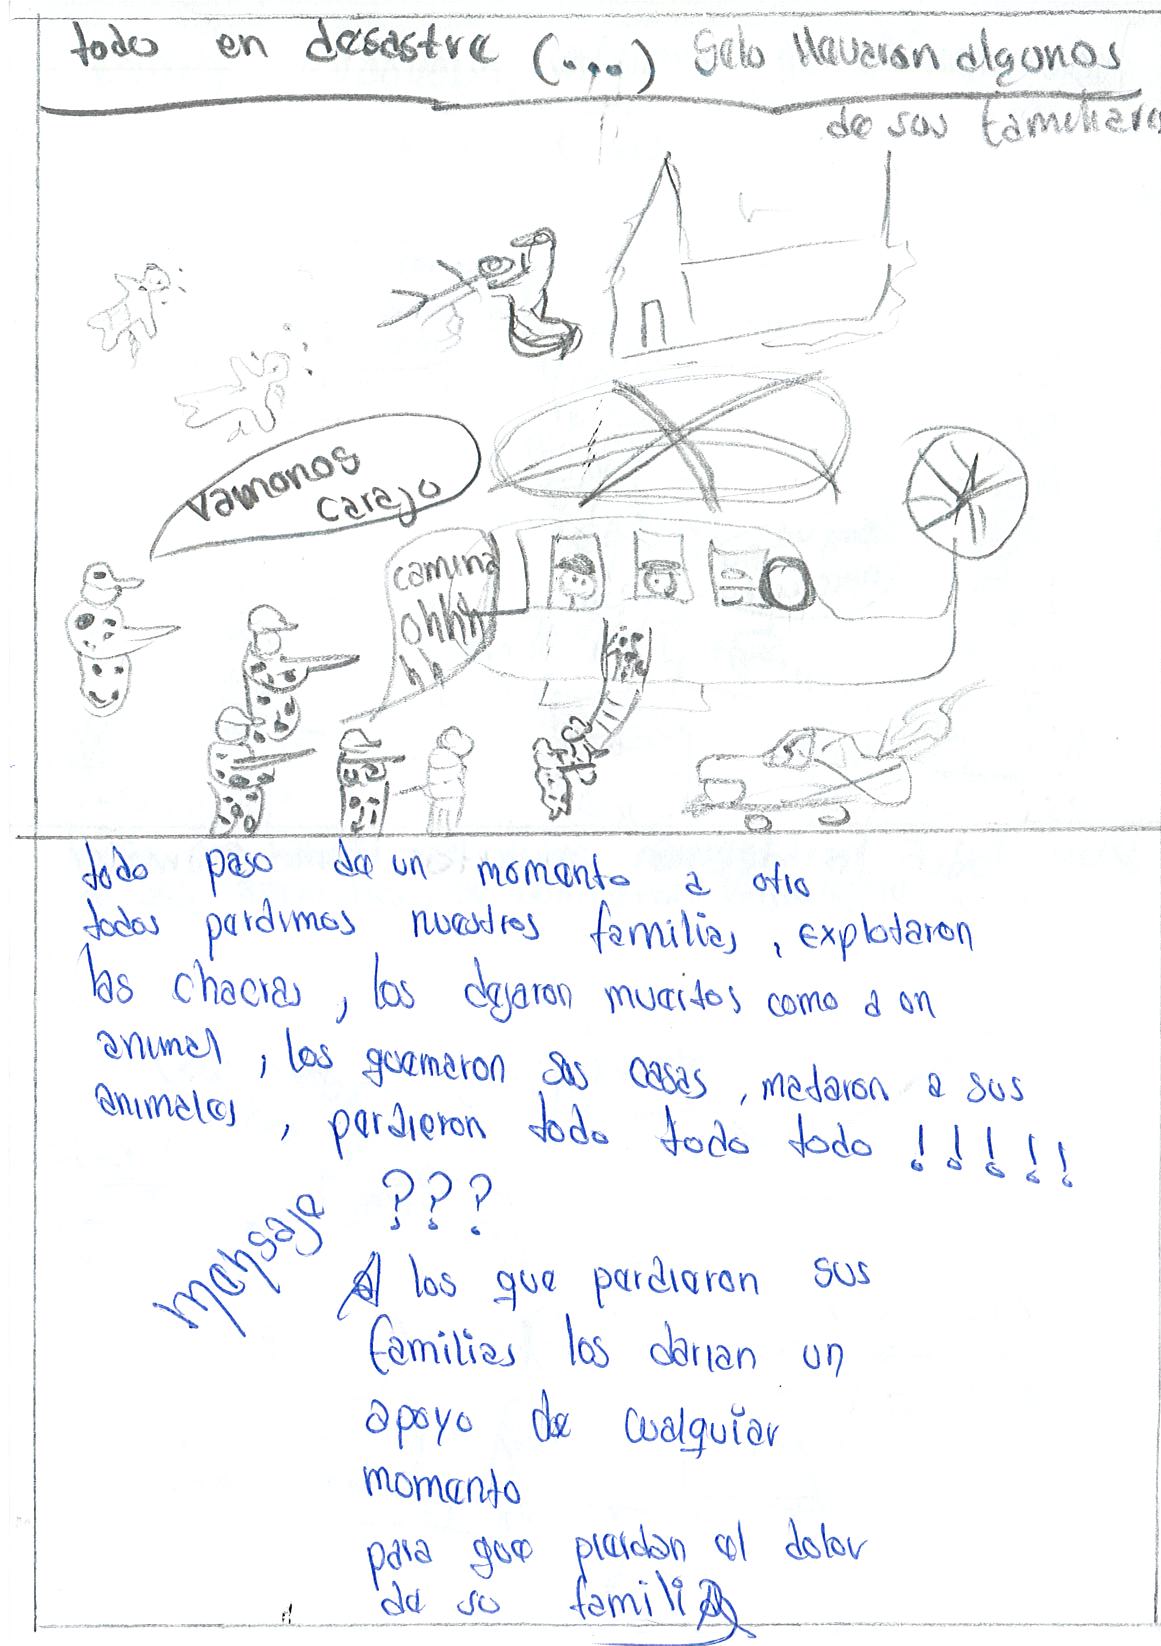 todo en desastre (...) Solo llevaron algunos
de sus familiares
Vamonos
carajo
camina
ohhhh
hh
todo paso de un momento a otro
todos perdimos nuestros familias, explotaron
las chacras, los dejaron muertos como a un
animal, los quemaron sus casas, mataron a sus
animales, perdieron todo todo todo !!!!!
???
mensaje
A los que perdieron sus
familias los darian un
apoyo de cualquier
momento
para que pierdan el dolor
de su familia